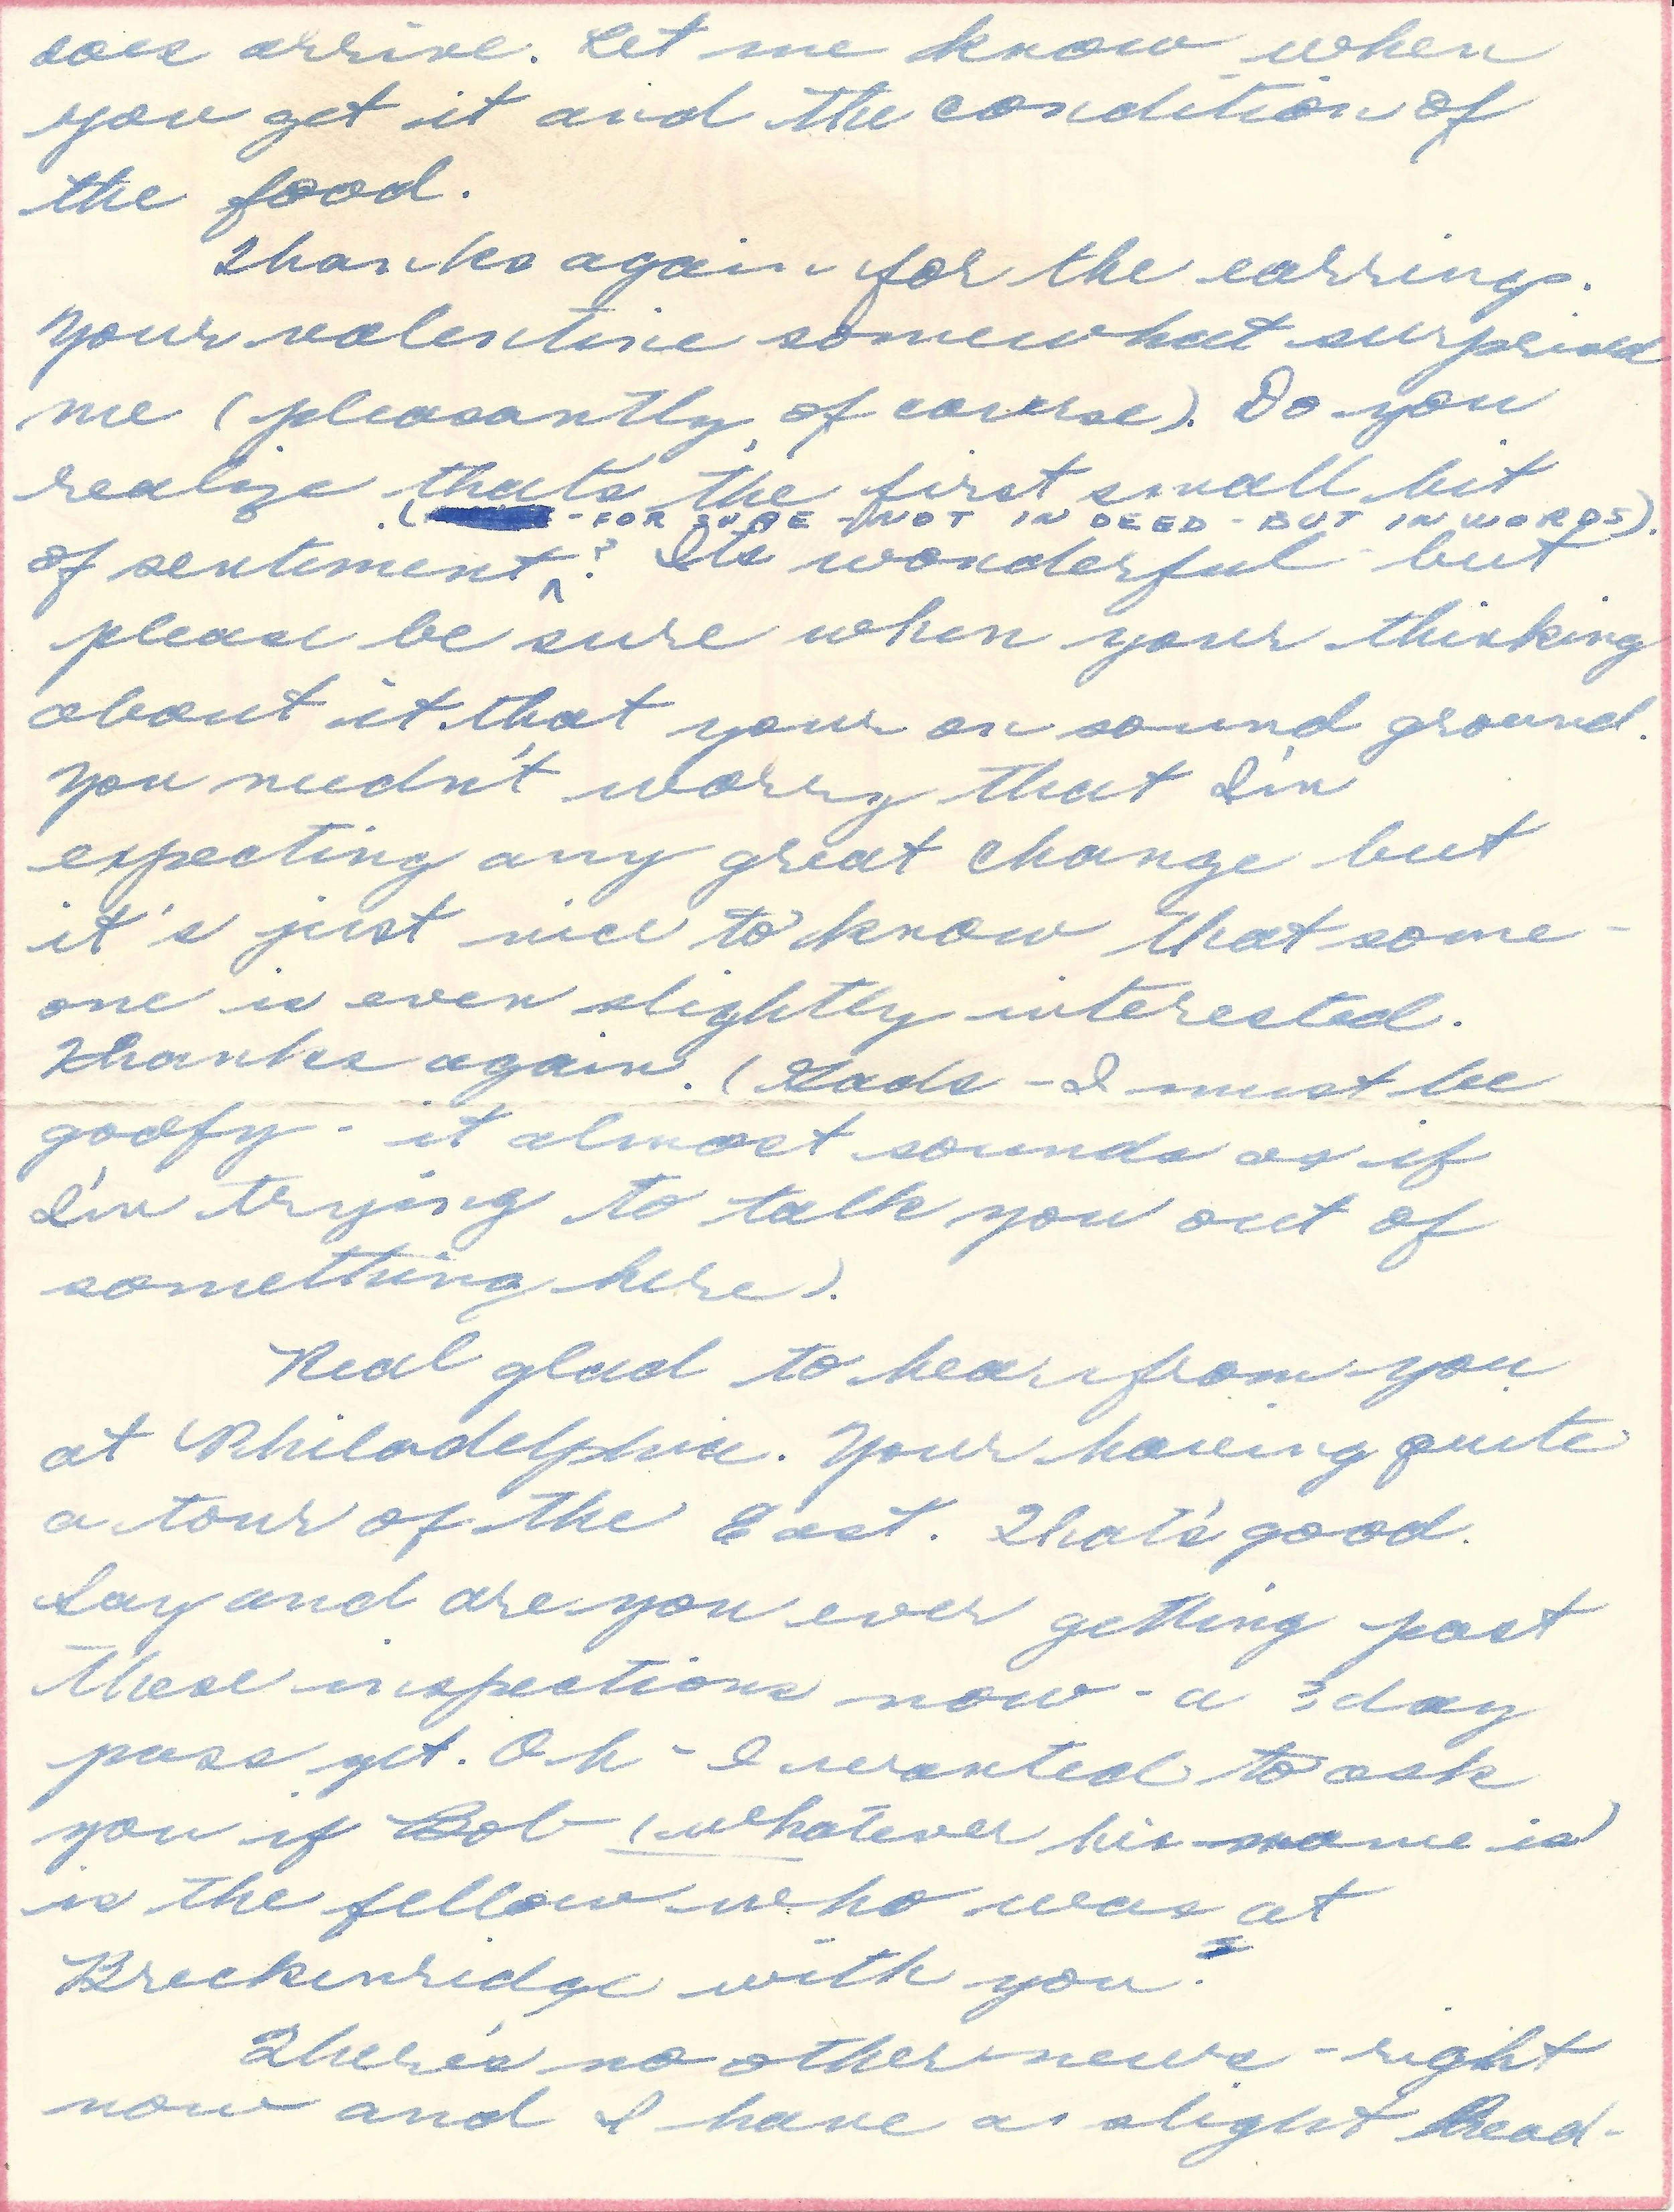 does arrive. Let me know when
you get it and the condition of
the food.
Thanks again for the earrings.
Your valentine somewhat surprised
me (pleasantly, of course). Do you
realize that's the first small bit
(- FOR SURE - NOT IN DEED - BUT IN WORDS).
of sentiment? It's wonderful - but
please be sure when your thinking
about it that your on sound ground.
You needn't worry that I'm
expecting any great change but
it's just nice to know that some-
one is even slightly interested.
Thanks again. (Gads - I must be
goofy - it almost sounds as if
I'm trying to talk you out of
something here).
Real glad to hear from you
at Philadelphia. Your having quite
a tour of the East. That's good.
Say and are you ever getting past
these inspections now - a 3 day
pass yet. Oh - I wanted to ask
you if Bob (whatever his name is)
is the fellow who was at
Breckinridge with you?
There's no other news - right
now and I have a slight head-